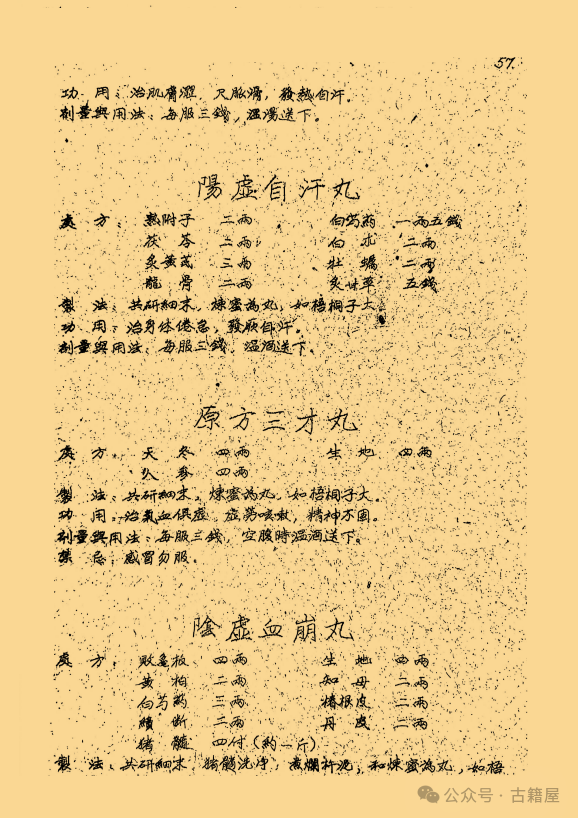 57.
功 用：治肌膚澀，尺脈滑，發熱自汗。
劑量與用法：每服三錢，溫湯送下。
陽虛自汗丸
處 方：熟附子 二兩 白芍药 一兩五錢
茯苓 二兩 白朮 二兩
炙黄芪 三兩 牡蠣 二兩
龍骨 二兩 炙甘草 五錢
製 法：共研細末，煉蜜為丸，如梧桐子大。
功 用：治身体倦怠，發厥自汗。
劑量與用法：每服三錢，溫酒送下。
原方三才丸
處 方：天冬 四兩 生地 四兩
人參 四兩
製 法：共研細末，煉蜜為丸，如梧桐子大。
功 用：治氣血俱虛，虛勞咳嗽，精神不固。
劑量與用法：每服三錢，空腹時溫酒送下。
禁 忌：感冒勿服。
陰虛血崩丸
處 方：敗龜板 四兩 生地 四兩
黄柏 二兩 知母 二兩
白芍药 三兩 椿根皮 二兩
續斷 二兩 丹皮 二兩
猪髓 四付（約一斤）
製 法：共研細末，猪髓洗净，煮爛杵泥，和煉蜜為丸，如梧
公众号·古籍屋